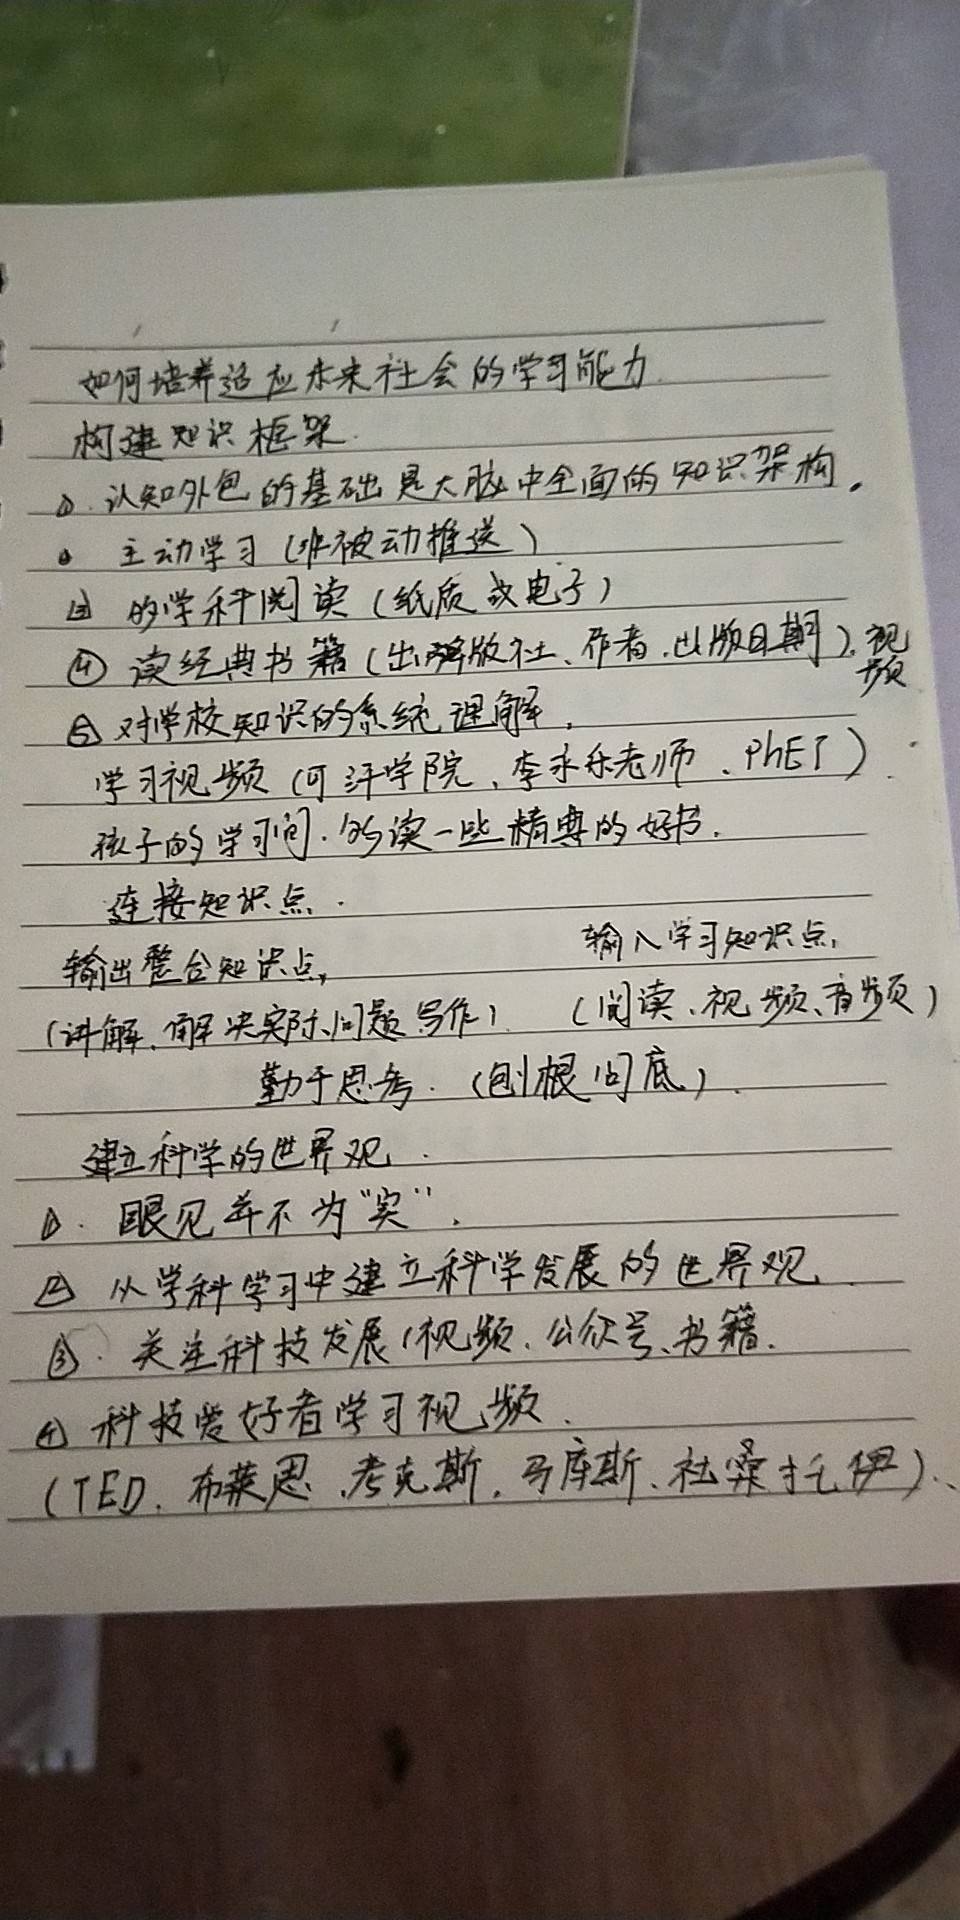 如何培养适应未来社会的学习能力.
构建知识框架.
①. 认知外包的基础是大脑中全面的知识架构.
② 主动学习 (非被动推送)
③ 的学科阅读 (纸质或电子)
④ 读经典书籍 (出版社、作者.出版日期), 视频
⑤ 对学校知识的系统理解,
学习视频 (可汗学院, 李永乐老师、PhET).
孩子的学习, 的读一些精典的好书.
连接知识点.
输入学习知识点,
输出整合知识点,
(讲解、解决实际问题写作). (阅读、视频、音频)
勤于思考. (刨根问底).
建立科学的世界观.
①. 眼见并不为“实”.
② 从学科学习中建立科学发展的世界观.
③. 关注科技发展(视频、公众号、书籍.
④ 科技爱好者学习视频.
(TED、布莱恩.考克斯, 马库斯.杜桑托伊)、